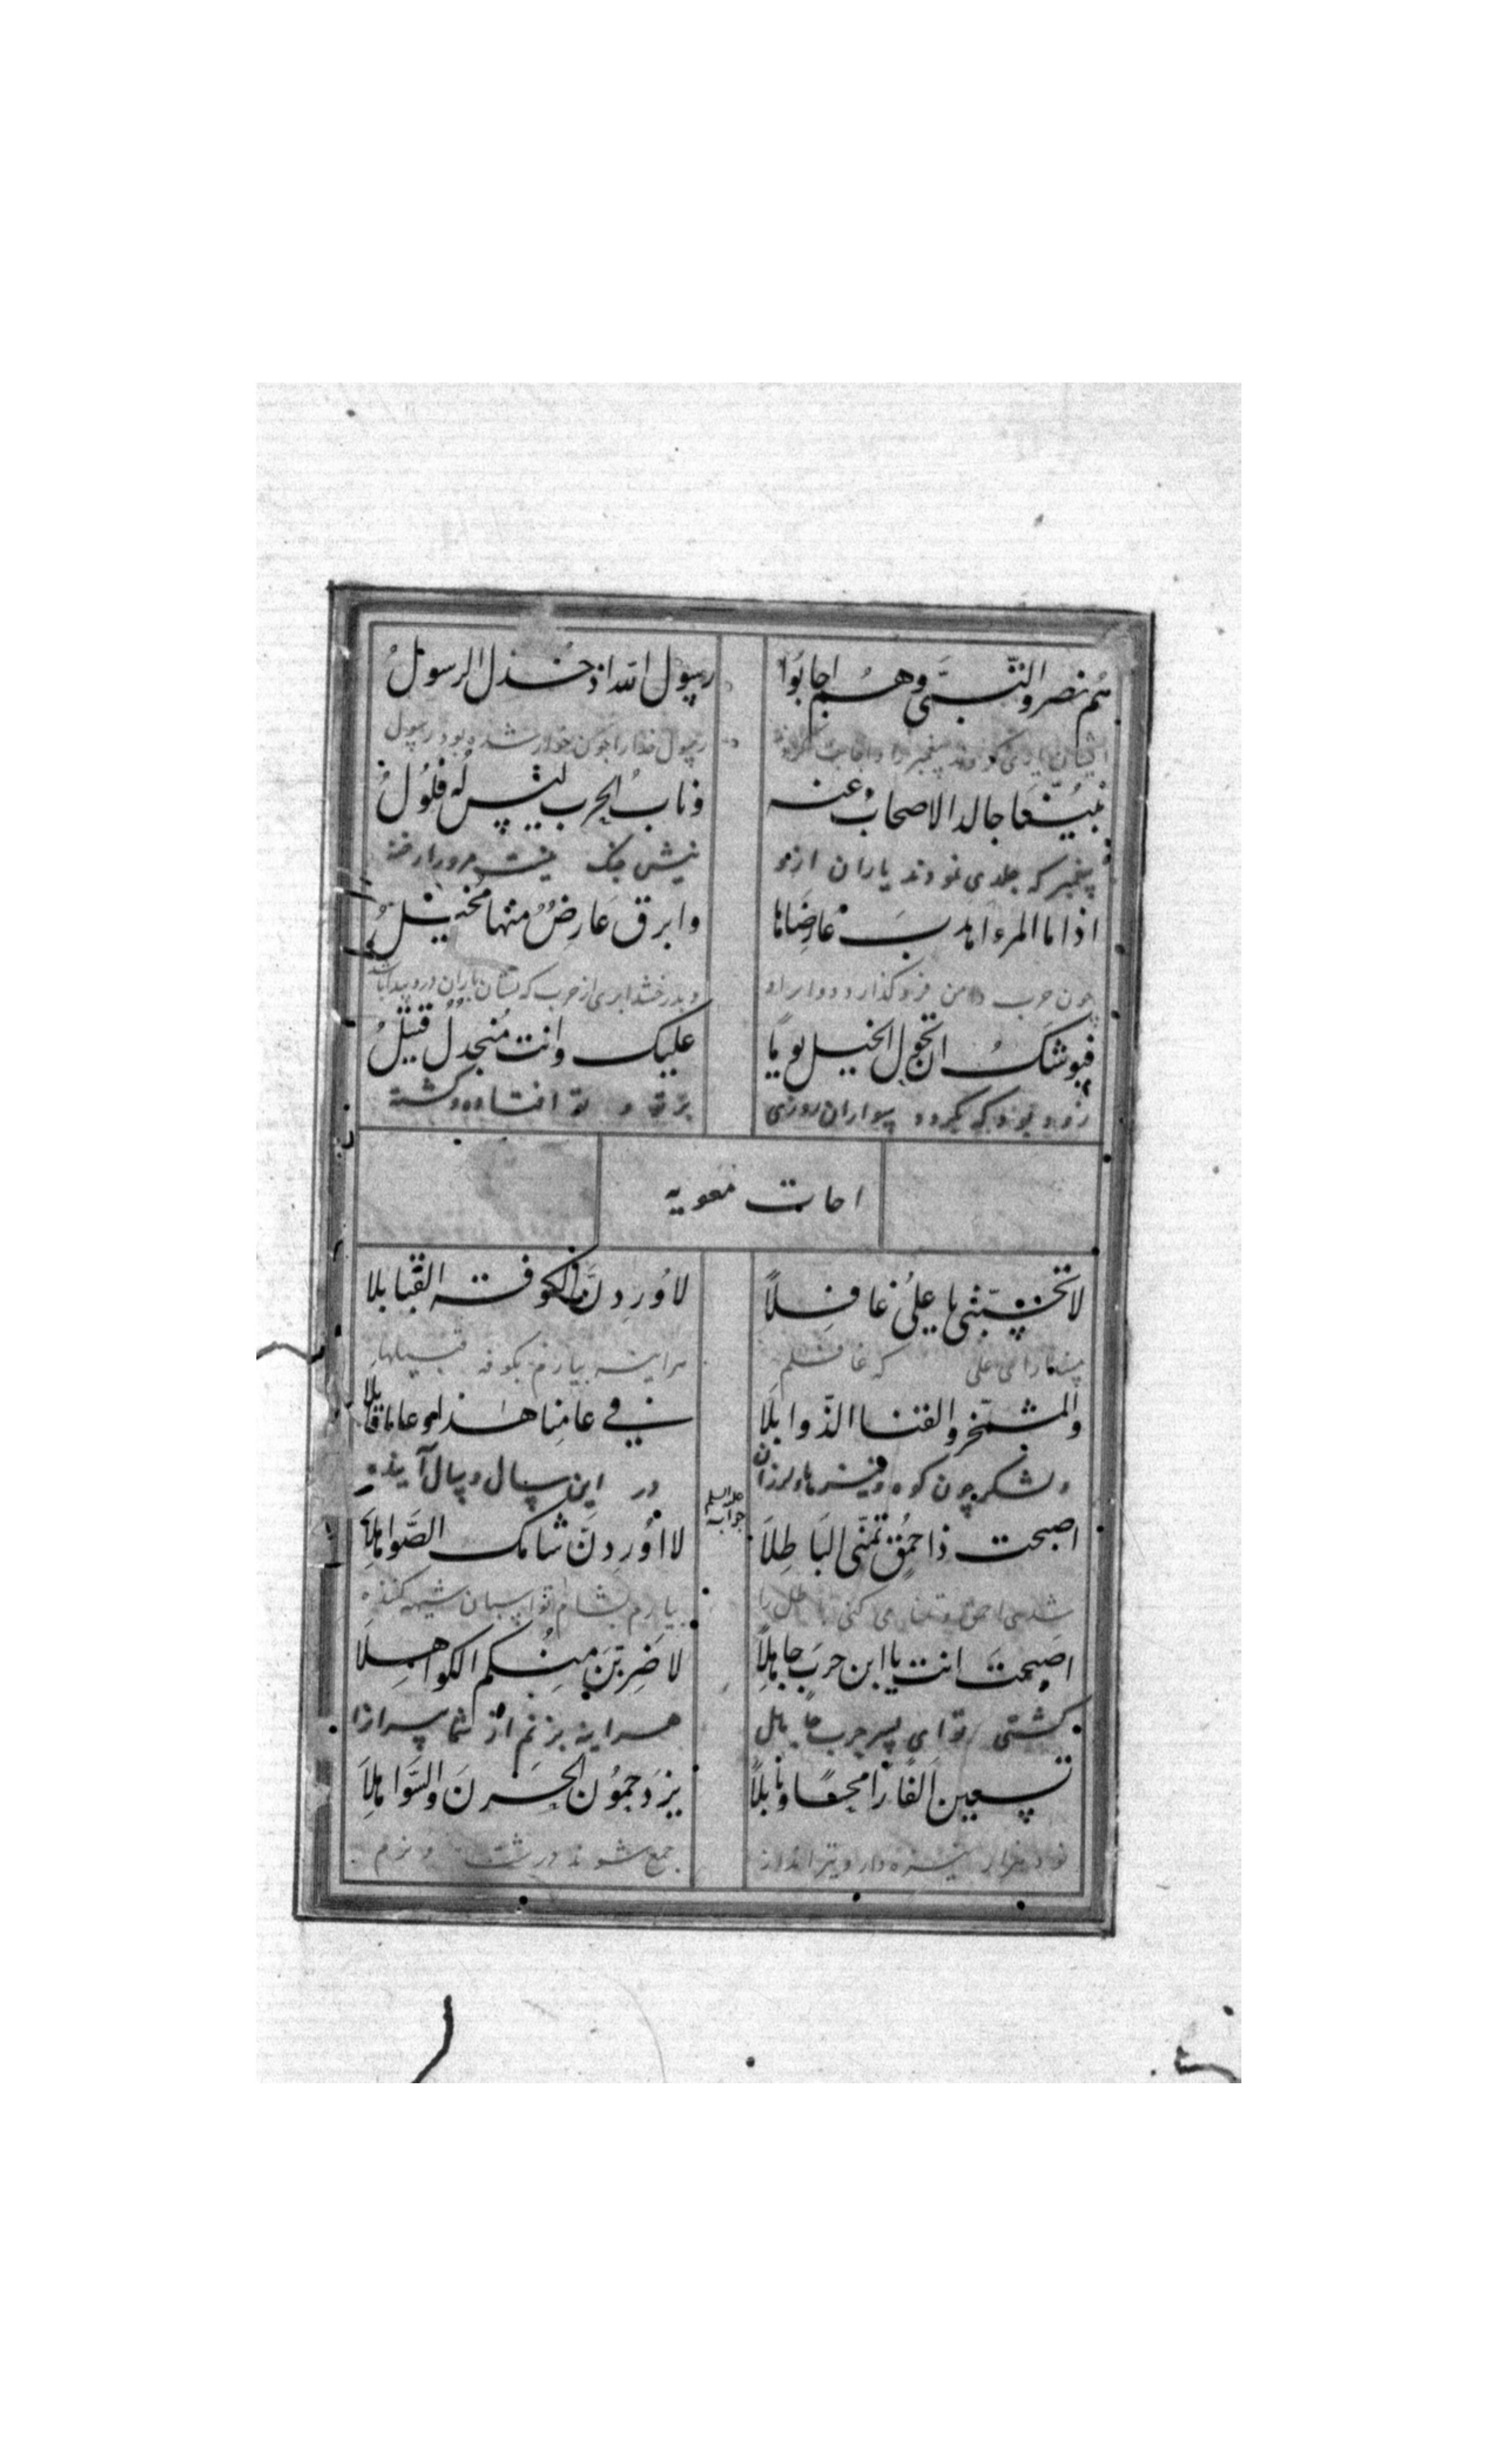 هُم نصروا النّبیَّ وهُم اجابُوا رسول الله اذ خُذل الرسولُ
ایشان یاری کردند پیغمبر را و اجابت کردند رسول خدا را چون خوار شده بود رسول
نبیّنا جالد الاصحابُ عنه وناب الحرب لیس له فلُولُ
پیغمبر که جلدی نمودند یاران ازو نیش جنک نیست مرو را رخنه
اذا ما المرء اهدب عارضاها وابرق عَارِضٌ منها مخیلُ
چون حرب دامن فرو گذارد دو ابر او و بدرخشد ابری از حرب که نشان باران درو پیدا باشد
فیوشکُ ان تجول الخیل یوماً علیک وانت مُنجدلٌ قتیلُ
زود بود که بگردد سواران روزی بر تو و تو افتاده و کشته
احات معویه
لا تحسبنّی یا علیُ غافلاً لاُوردنَّ الکوفة القبایلا
مپندار ای علی که غافلم هراینه بیارم بکوفه قبیلها
والمشمخر والقنا الذّوابلا فی عامِنا هذا و عاما قابلا
و لشکر چون کوه و نیزها و لرزان در این سال و سال آینده
علیه السلم جوابه
اصبحت ذا حُمُق تمنّی البَاطِلَا لا اُورِدنّ شامک الصّواهِلَا
شدی احمق و تمنا می کنی باطل را بیارم بشام تو اسبان شیهه کننده
اصبحتَ انت یا ابن حربَ جاهِلاً لاضرِبَن مِنُکم الکواهِلَا
کشتی تو ای پسر حرب جاهل هراینه بزنم از شما سرازا
تسعین اَلفًا رَامحًا ونابلاً یزدحِمُون الحَزنَ والسَّواهِلَا
نود هزار نیزه دار و تیر انداز جمع شوند درشت و نرم